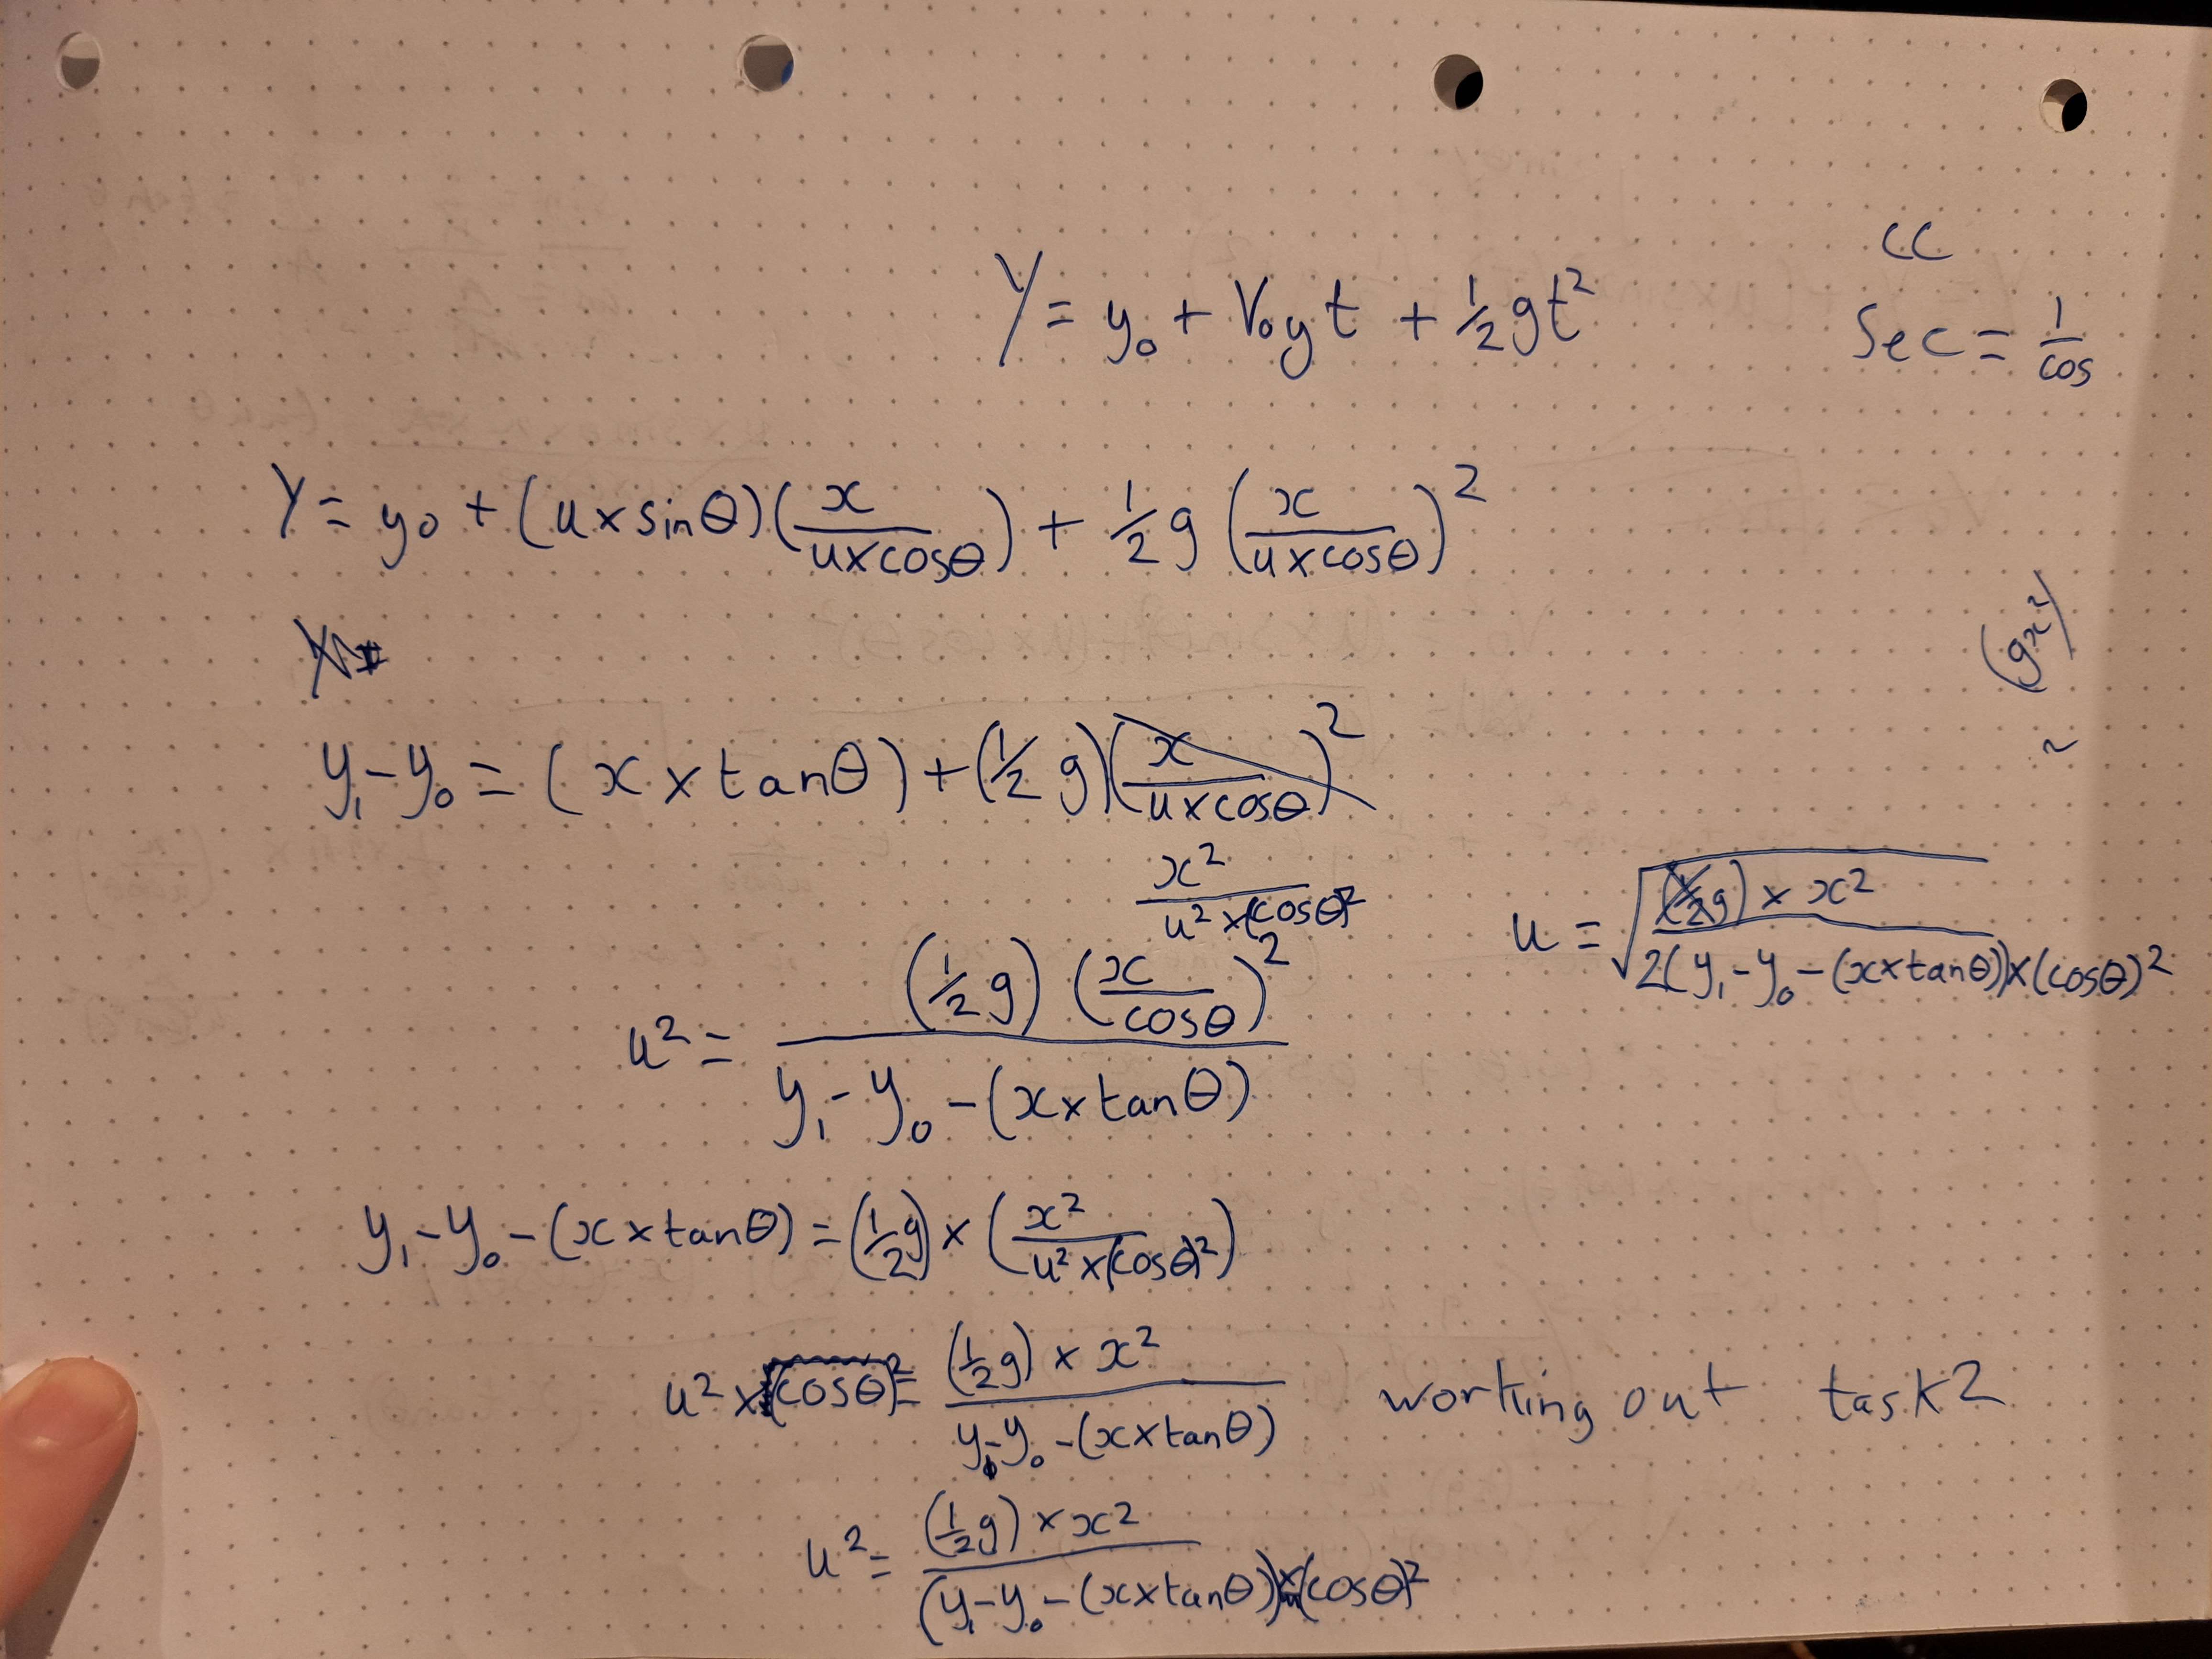 CC
Y = y₀ + V₀y t + ½gt²
Sec = 1/cos
Y = y₀ + (u×sinθ)(x/(u×cosθ)) + ½g(x/(u×cosθ))²
(gx²)
y₁-y₀ = (x × tanθ) + (½g)(x/(u×cosθ))²
x²/(u²×(cosθ)²)
u = √(((½g) × x²)/(2(y₁-y₀-(x×tanθ))×(cosθ)²))
u² = ((½g)(x/cosθ)²)/(y₁-y₀-(x×tanθ))
y₁-y₀-(x×tanθ) = (½g)×(x²/(u²×(cosθ)²))
u²×(cosθ)² = ((½g)×x²)/(y₁-y₀-(x×tanθ))
working out task 2
u² = ((½g)×x²)/((y₁-y₀-(x×tanθ))×(cosθ)²)